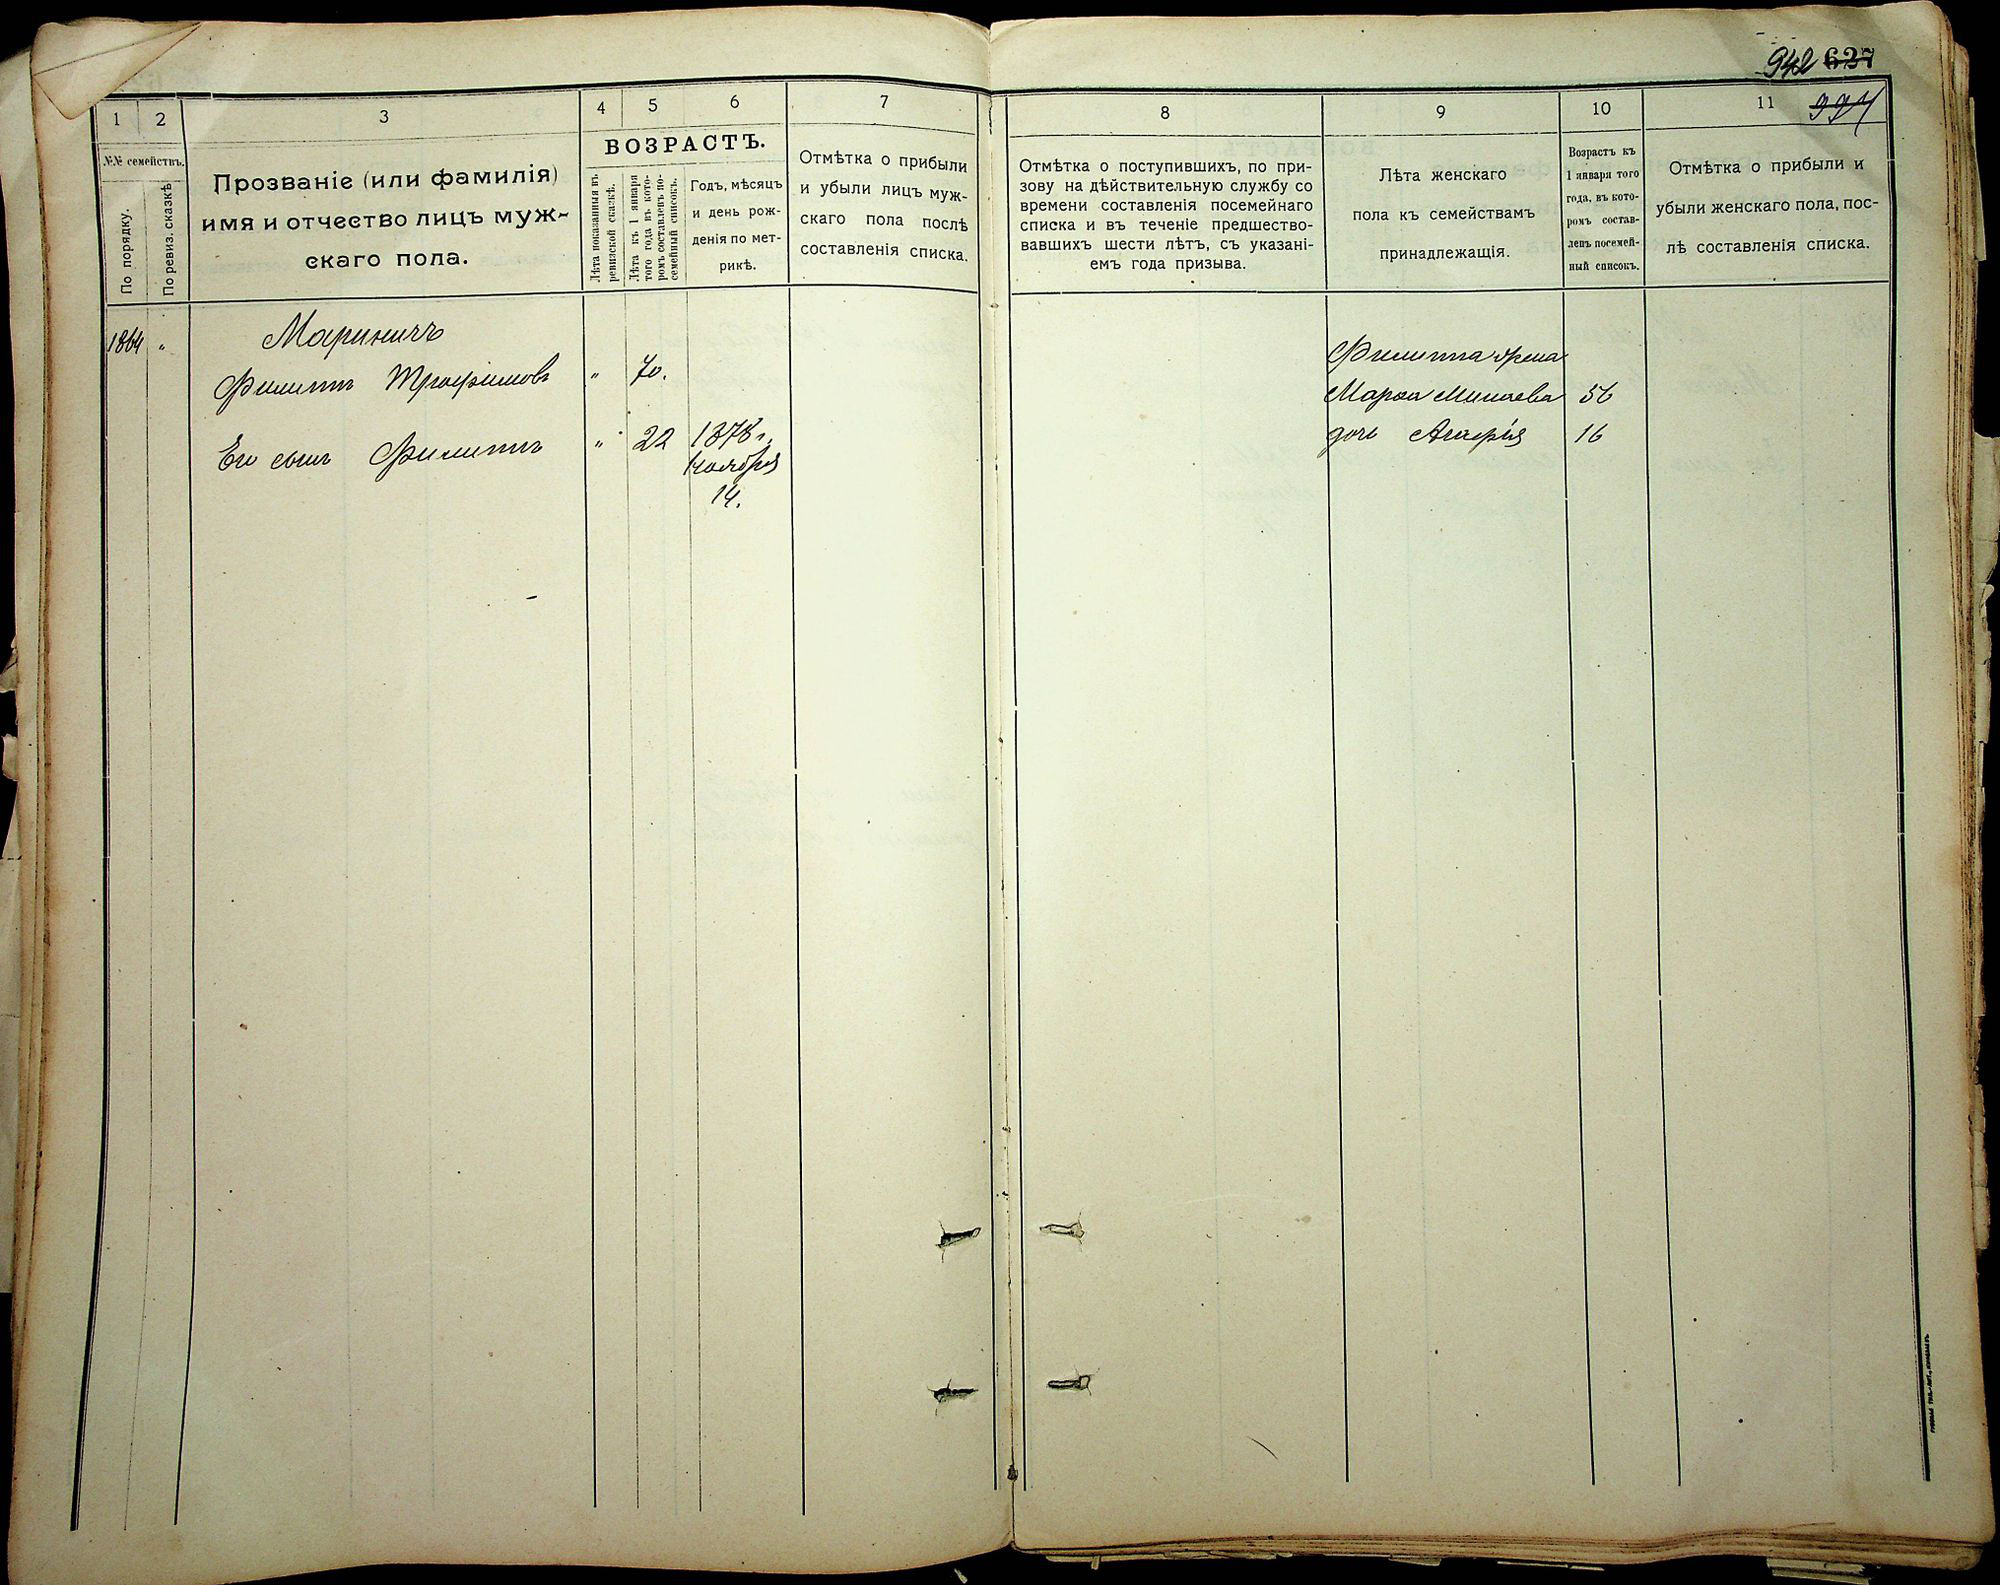 942 627
994
1
2
3
4
5
6
7
8
9
10
11
№№ семействъ.
По порядку.
По ревиз. сказкѣ
Прозваніе (или фамилія)
имя и отчество лицъ муж-
скаго пола.
ВОЗРАСТЪ.
Лѣта показанныя въ
ревизской сказкѣ.
Лѣта къ 1 января
того года въ кото-
ромъ составленъ по-
семейный списокъ.
Годъ, мѣсяцъ
и день рож-
денія по мет-
рикѣ.
Отмѣтка о прибыли
и убыли лицъ муж-
скаго пола послѣ
составленія списка.
Отмѣтка о поступившихъ, по при-
зову на дѣйствительную службу со
времени составленія посемейнаго
списка и въ теченіе предшество-
вавшихъ шести лѣтъ, съ указані-
емъ года призыва.
Лѣта женскаго
пола къ семействамъ
принадлежащія.
Возрастъ къ
1 января того
года, въ кото-
ромъ состав-
ленъ посемей-
ный списокъ.
Отмѣтка о прибыли и
убыли женскаго пола, пос-
лѣ составленія списка.
1864 „ Мариничъ
Филиппъ Трофимовъ „ 70.
Его сынъ Филиппъ „ 22 1878 г.
Ноября
14.
Филиппа жена
Марѳа Минаева 56
дочь Агафія 16